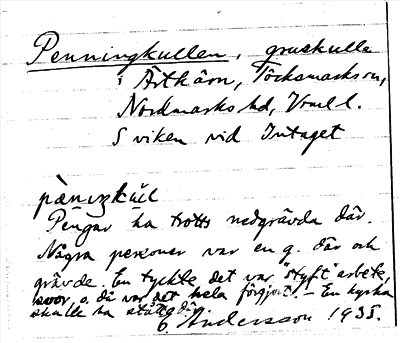 Penningkullen, gruskulle
i Årtkärn, Töcksmarks sn,
Nordmarks hd, Vrml l.
S viken vid Intaget
Pengar ha trotts nedgrävda där.
Några personer var en g. där och
grävde. En tyckte det var "styft" arbete,
svor, o. då var det hela förgjort. – En kyrka
skulle ha stått där
Andersson 1935.